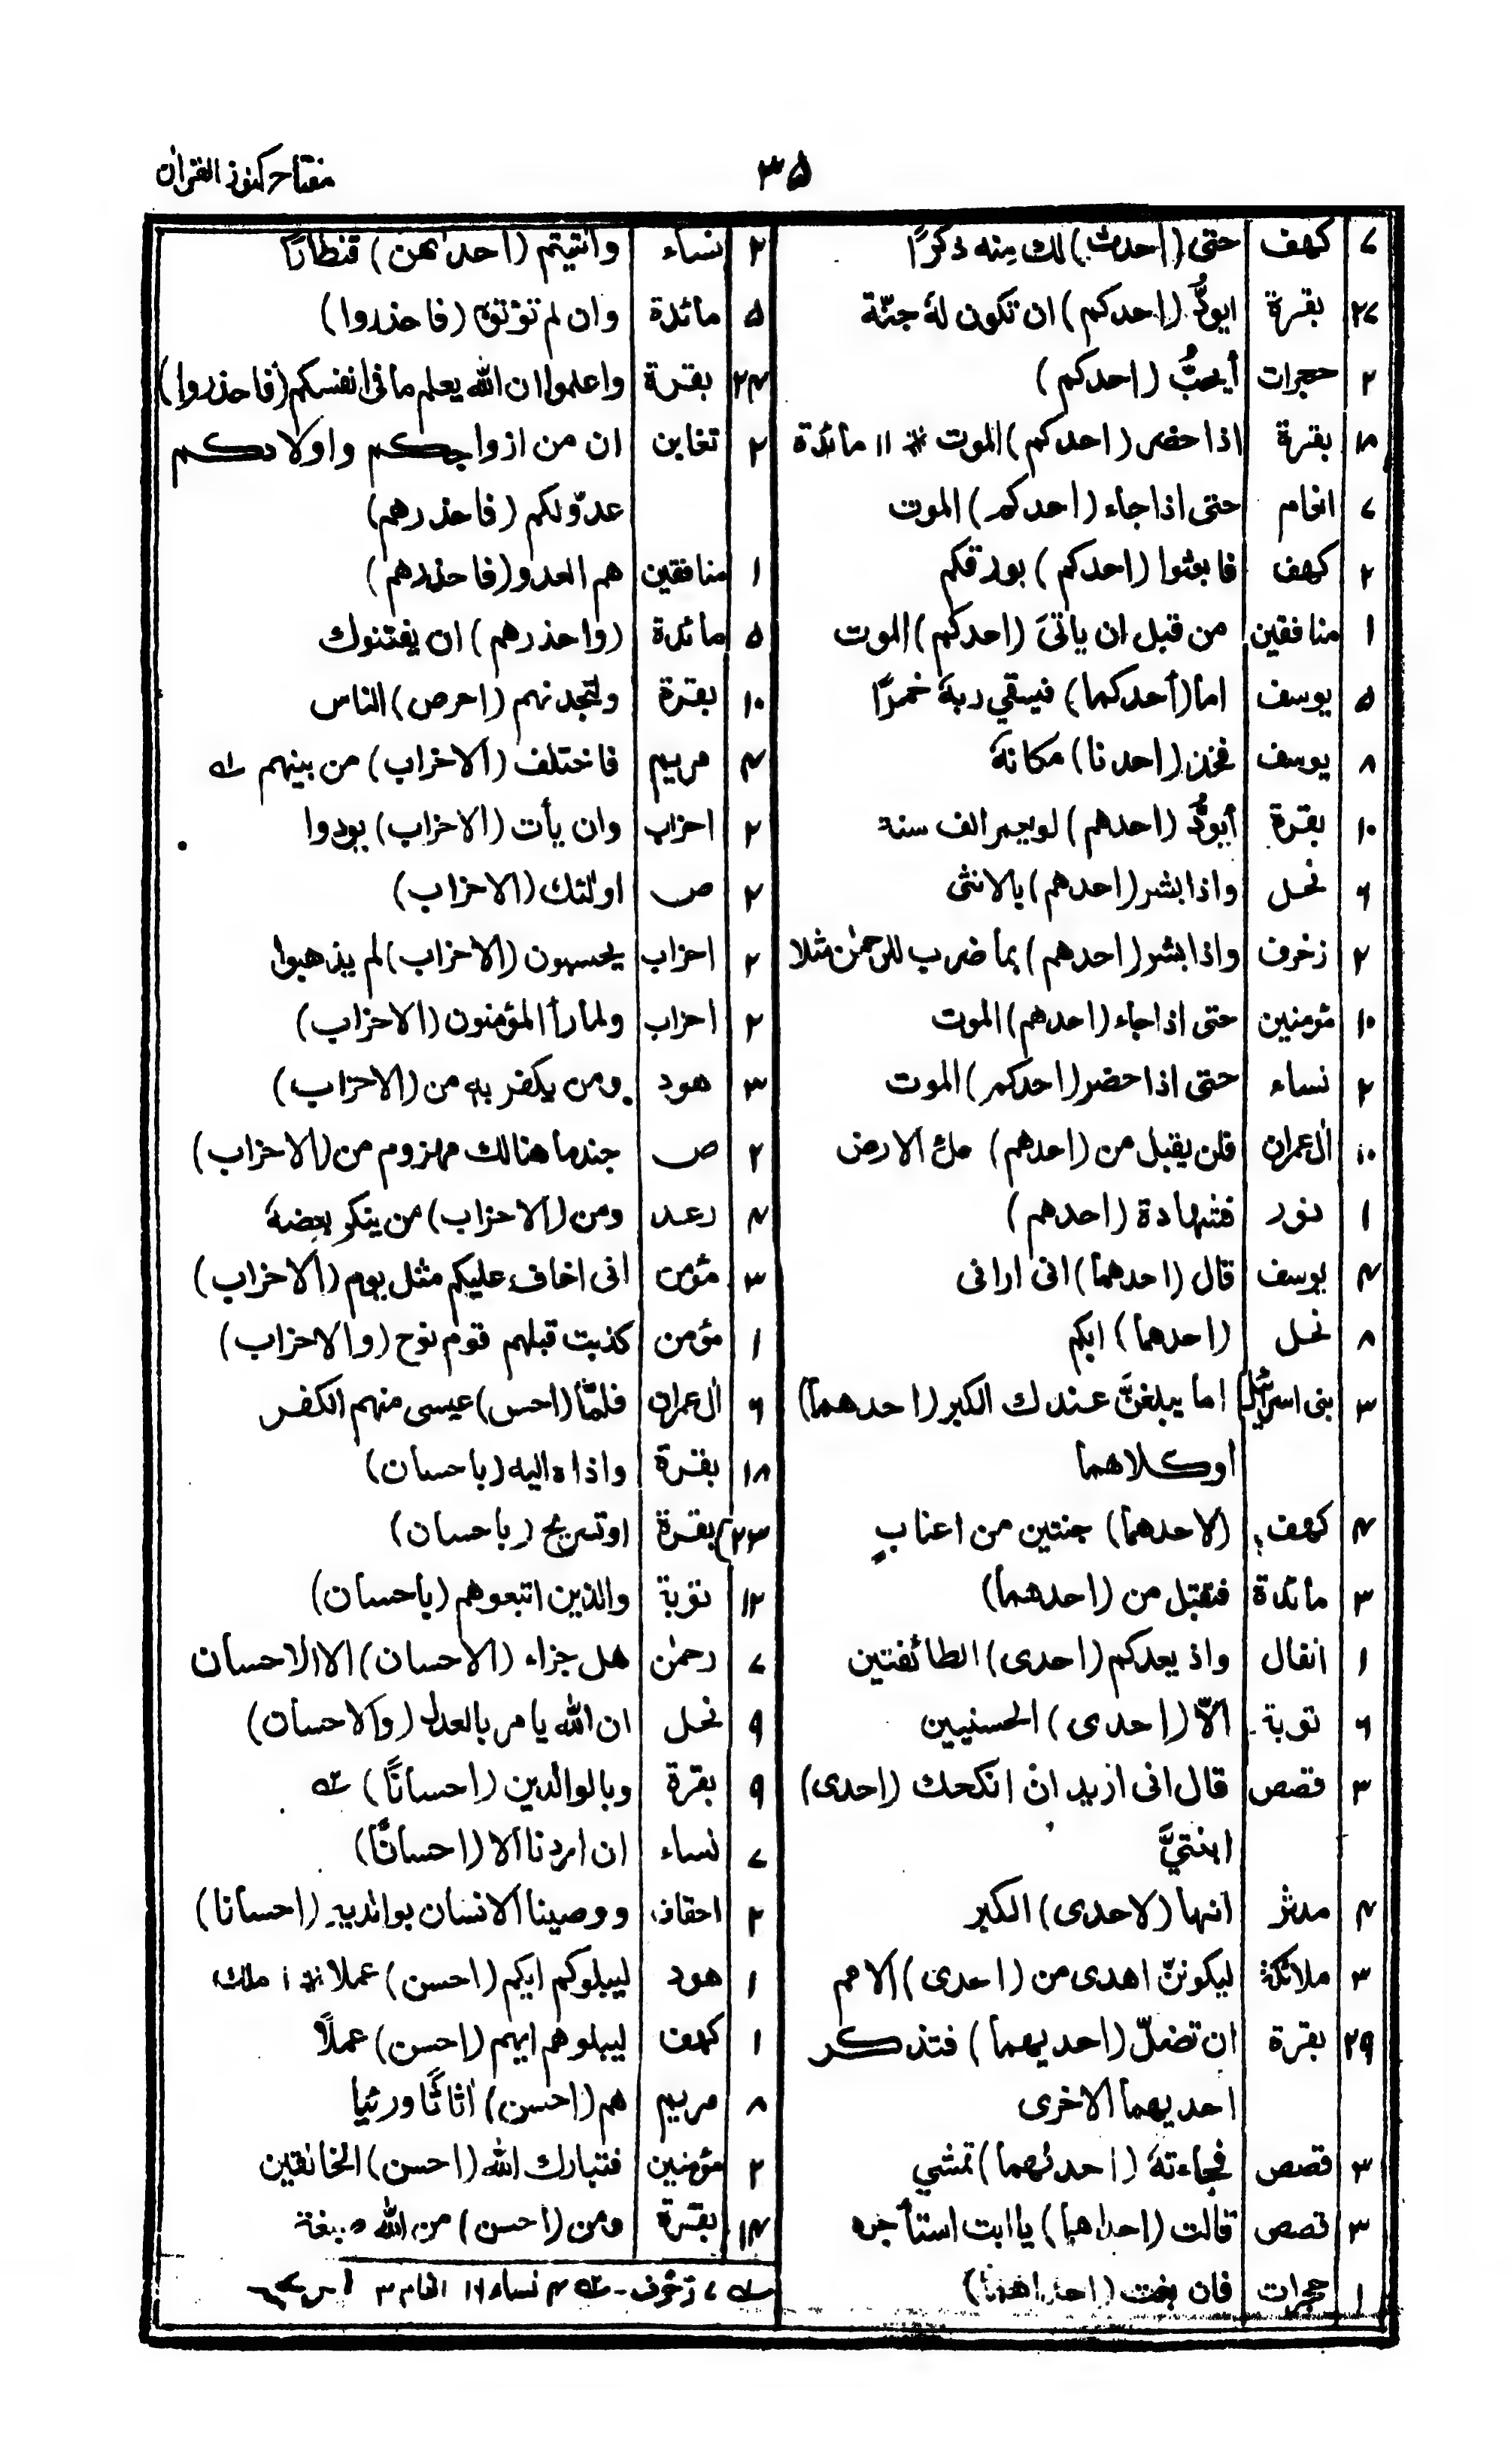 مفتاح کنوز القرآن
۳۵
۷ کهف حتى (احدث) لك منه ذكرًا
۲۷ بقرة ايودُّ (احدكم) ان تكون لهٗ جنّة
۲ حجرات أيحبُّ (احدكم)
۱۸ بقرة اذا حضر (احدكم) الموت * ۱۱ مائدة
۷ انعام حتى اذا جاء (احدكم) الموت
۲ كهف فابعثوا (احدكم) بورقكم
۱ منافقين من قبل ان ياتىَ (احدكم) الموت
۵ يوسف اما (أحدكما) فيسقي ربهٗ خمرًا
۸ يوسف فخذ (احدنا) مكانهٗ
۱۰ بقرة أيودُّ (احدهم) لو يعمر الف سنة
۶ نحل واذا بشر (احدهم) بالانثى
۲ زخرف واذا بشر (احدهم) بما ضرب للرحمٰن مثلا
۱۰ مؤمنين حتى اذا جاء (احدهم) الموت
۲ نساء حتى اذا حضر (احدكم) الموت
۱۰ اٰل عمران فلن يقبل من (احدهم) ملٔ الارض
۱ نور فشهادة (احدهم)
۴ يوسف قال (احدهما) انى ارانى
۸ نحل (احدهما) ابكم
۳ بنى اسرائيل اما يبلغنَّ عندك الكبر (احدهما)
اوكلاهما
۴ كهف (لاحدهما) جنتين من اعنابٍ
۳ مائدة فتقبل من (احدهما)
۱ انفال واذ يعدكم (احدى) الطائفتين
۶ توبة الّا (احدى) الحسنيين
۳ قصص قال انى ازيد ان انكحك (احدى)
ابنتيَّ
۴ مدثر انها (لاحدى) الكبر
۳ ملائكة ليكوننّ اهدى من (احدى) الامم
۲۹ بقرة ان تضلّ (احديهما) فتذكر
احديهما الاخرى
۳ قصص فجاءتهٗ (احدٰىهما) تمشي
۳ قصص قالت (احداهما) يا ابت استأجره
۱ حجرات فان بغت (احداهما)
۲ نساء واٰتيتم (احدٰىهن) قنطارًا
۵ مائدة وان لم تؤتوه (فاحذروا)
۲۴ بقرة واعلموا ان الله يعلم ما فى انفسكم (فاحذروا)
۲ تغابن ان من ازواجكم واولادكم
عدوّ لكم (فاحذرهم)
۱ منافقين هم العدو (فاحذرهم)
۵ مائدة (واحذرهم) ان يفتنوك
۱۰ بقرة ولتجدنهم (احرص) الناس
۴ مريم فاختلف (الاحزاب) من بينهم له
۲ احزاب وان يأت (الاحزاب) يودوا
۲ ص اولٰئك (الاحزاب)
۲ احزاب يحسبون (الاحزاب) لم يذهبوا
۲ احزاب ولما رأ المؤمنون (الاحزاب)
۳ هود ومن يكفر به من (الاحزاب)
۲ ص جند ما هنالك مهزوم من (الاحزاب)
۴ رعد ومن (الاحزاب) من ينكر بعضهٗ
۳ مؤمن انى اخاف عليكم مثل يوم (الاحزاب)
۱ مؤمن كذبت قبلهم قوم نوح (والاحزاب)
۶ اٰل عمران فلمّا (احس) عيسى منهم الكفر
۱۸ بقرة واداء اليه (باحسان)
۲۳ بقرة او تسريح (باحسان)
۱۲ توبة والذين اتبعوهم (باحسان)
۷ رحمٰن هل جزاء (الاحسان) الا الاحسان
۹ نحل ان الله يامر بالعدل (والاحسان)
۹ بقرة وبالوالدين (احسانًا) ته
۷ نساء ان اردنا الا (احسانًا)
۲ احقاف ووصينا الانسان بوالديه (احسانا)
۱ هود ليبلوكم ايكم (احسن) عملا * ۱ ملك
۱ كهف ليبلوهم ايهم (احسن) عملًا
۸ مريم هم (احسن) اثاثًا ورئيا
۲ مؤمنين فتبارك الله (احسن) الخالقين
۱۴ بقرة ومن (احسن) من الله صبغة
له ۷ زخرف - ته ۴ نساء ۱۶ انعام ۳